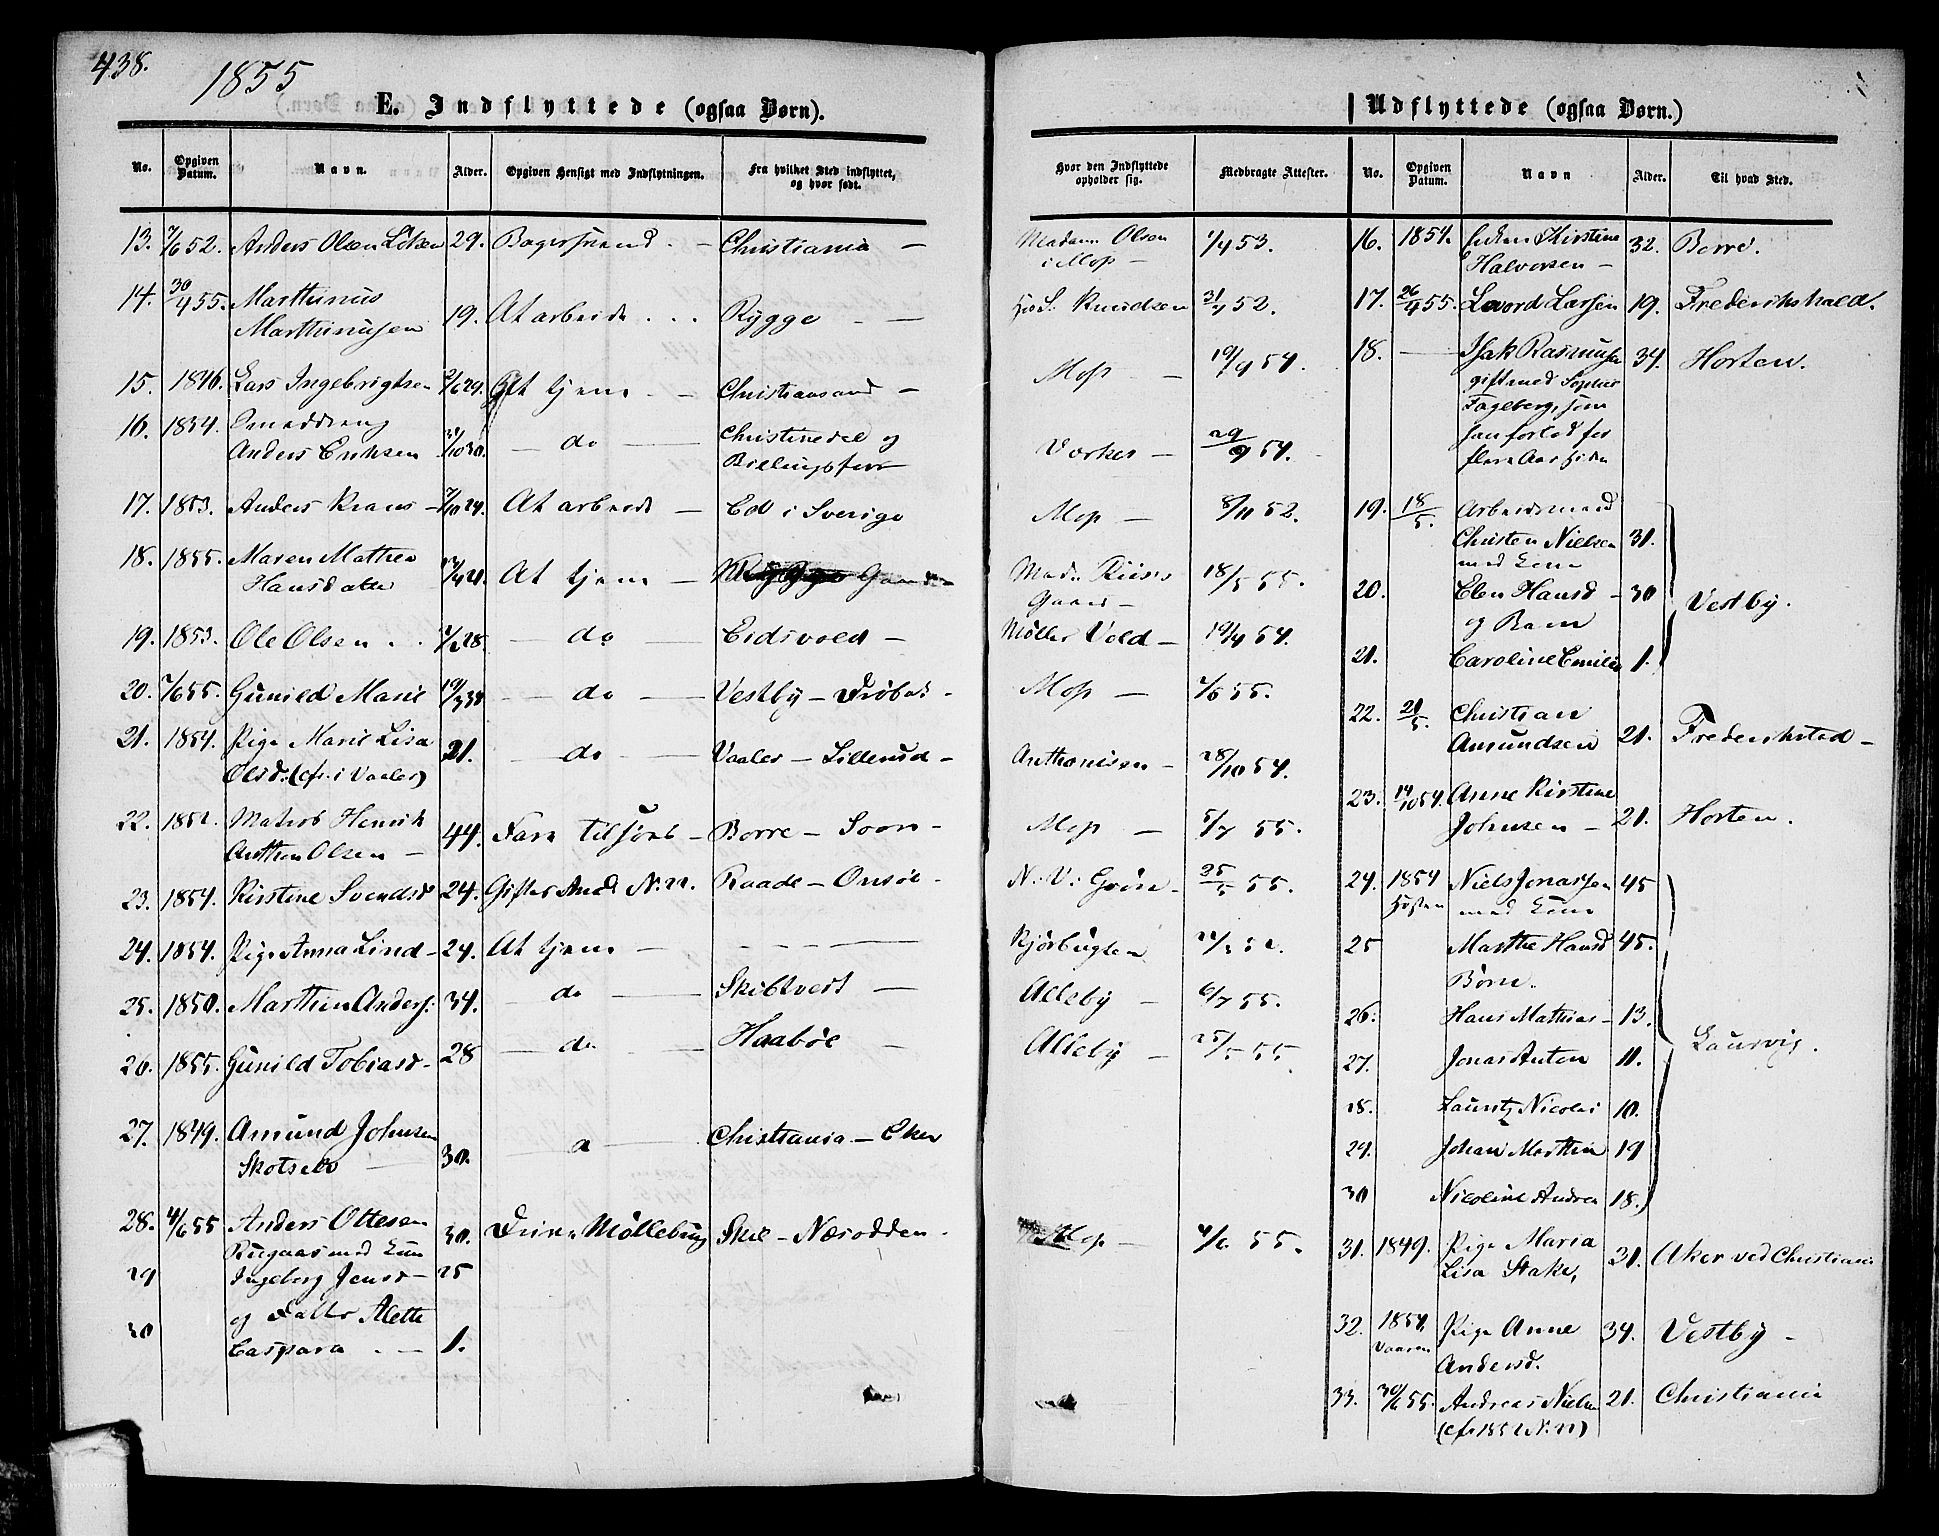 438.
1855
E. Indflyttede (ogsaa Børn).
No. Opgiven Datum. Navn. Alder. Opgiven Hensigt med Indflytningen. Fra hvilket Sted indflyttet, og hvor født.
13. 7/6 52. Anders Olsen Löken 29. Christiania —
14. 30/4 55. Marthinus
Marthinusen 19. At arbeide . . . Rygge —
15. 1846. Lars Ingebrigtsen 29. At tjene — Christiansand —
16. 1854.
Anders Eriksen 30. — do — Christinedal og
17. 1853. Anders Kraus — 24. At arbeide — Ed i Sverige
18. 1855. Maren Mathea
Hansdatter 21. At tjene —
19. 1853. Ole Olsen . . 28. — do — Eidsvold —
20. 7/6 55. Gunild Marie — do — Vestby — Dröbak —
21. 1854. Pige Marie Lisa
Olsd. (cfr. i Vaaler) 21. — do — Vaaler — Lillerud —
22. Matros Henrik
Anthon Olsen — 44. Fare tilsjøes — Borre — Soon —
23. 1854. Kirstine Svendsd 24. Giftes med N. 22. Raade — Onsöe —
24. 1854. Pige Anna Lind — 24. At tjene — — — —
25. 1850. Marthin Anders: 34. — do — Skibtvert —
26. 1855. Gunild Tobiasd — 28 — do — Haabøe —
27. 1849. Amund Johnsen
30. Christiania — Eker
28. 4/6 55 Anders Ottesen
30. Drive Møllebrug Skie — Næsodden —
29 Ingeborg Jensd — 25
30 og Datter Alette
Caspara . — 1.
Hvor den Indflyttede opholder sig. Medbragte Attester.
Madam Olsen
i Moss — 53.
Hos S. Knudsen 52.
Moss — 19/9 54.
Værket — 29/9 54.
Moss — 8/11 52.
Mad. Riises
Gaard — 18/5 55.
Møller Vold — 19/4 54.
Moss — 55.
Anthonisen — 28/10 54.
Moss — 5/7 55.
N. V. Grøn — 25/5 55.
Kjörbugten
Alleby — 6/7 55.
Alleby — 25/5 55
Moss — 4/6 55.
Udflyttede (ogsaa Børn.)
No. Opgiven Datum. Navn Alder. Til hvad Sted.
16. 1854. Kirstine
Halvorsen — 32. Borre.
17. 26/4 55. Lavord Larsen 19. Frederikshald.
18. — Isak Rasmusen 34. Horten.
gift med Sophie
Fageberg, som
han forlod for
flere Aar siden
19. 18/5. Arbeidsmand
Christen Nielsen 31.
med Kone
20. Elen Hansd — 30 Vestby.
og Barn
21. Caroline Emilie 1.
22. 21/5. Christian
Amundsen 21. Frederikstad —
23. 14/10 54. Anne Kirstine
Johnsen — 21. Horten.
24. 1854 Niels Jonassen 45
Høsten med Kone
25 Marthe Hansd 45.
Børn.
26. Hans Mathias — 13.
Laurvig.
27. Jonas Anton 11.
28. Lauritz Nicolai 10.
29. Johan Marthin 19
30 Nicoline Andrea 18.
31. 1849. Pige Maria
Lisa Stake, 31. Aker ved Christiania
32. 1854 Pige Anne 34. Vestby —
Vaaren Andersd.
33. 30/6 55. Andreas Nielsen 21. Christiania